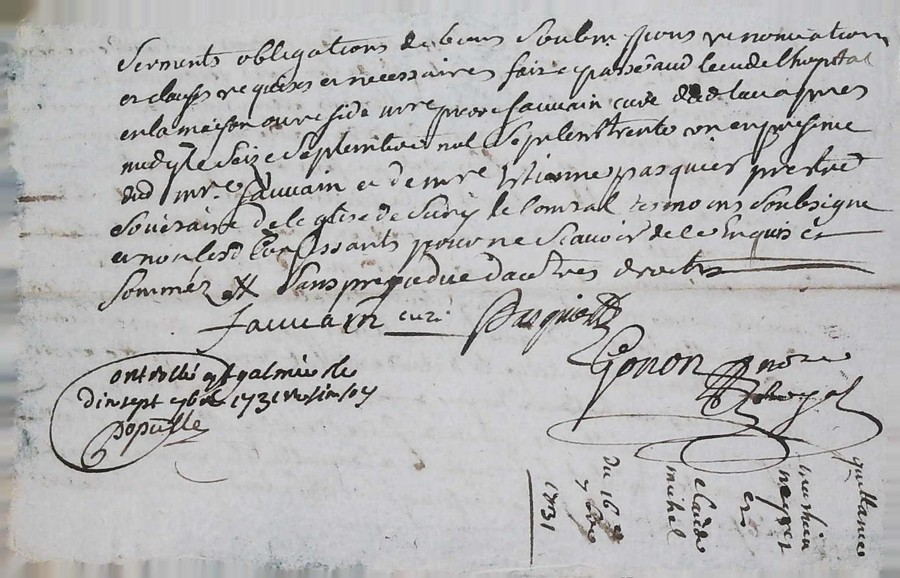 Serments obligations de biens Soubmissions renonciation
et clauses requises et necessaires faict passé aud lieu de lhopital
en la maison ou reside mre pierre Jauvain curé dud lieu apres
midy le Seize Septembre mil Sept cent trente un en presence
dud mre Jauvain et de mre Estienne pasquier prestre
de leglise de Sury le Comtal tesmoins Soubsigné
et non lesd Confessants pour ne Scavoir de ce Enquis et
Sommés sans prejudice dautres droits
Jauvain curé Pasquier
Gonon nore royal
Controllé a St galmier le
dix sept 7bre 1731
quittance
mathieu
et
claude
michel
du 16e
7bre
1731